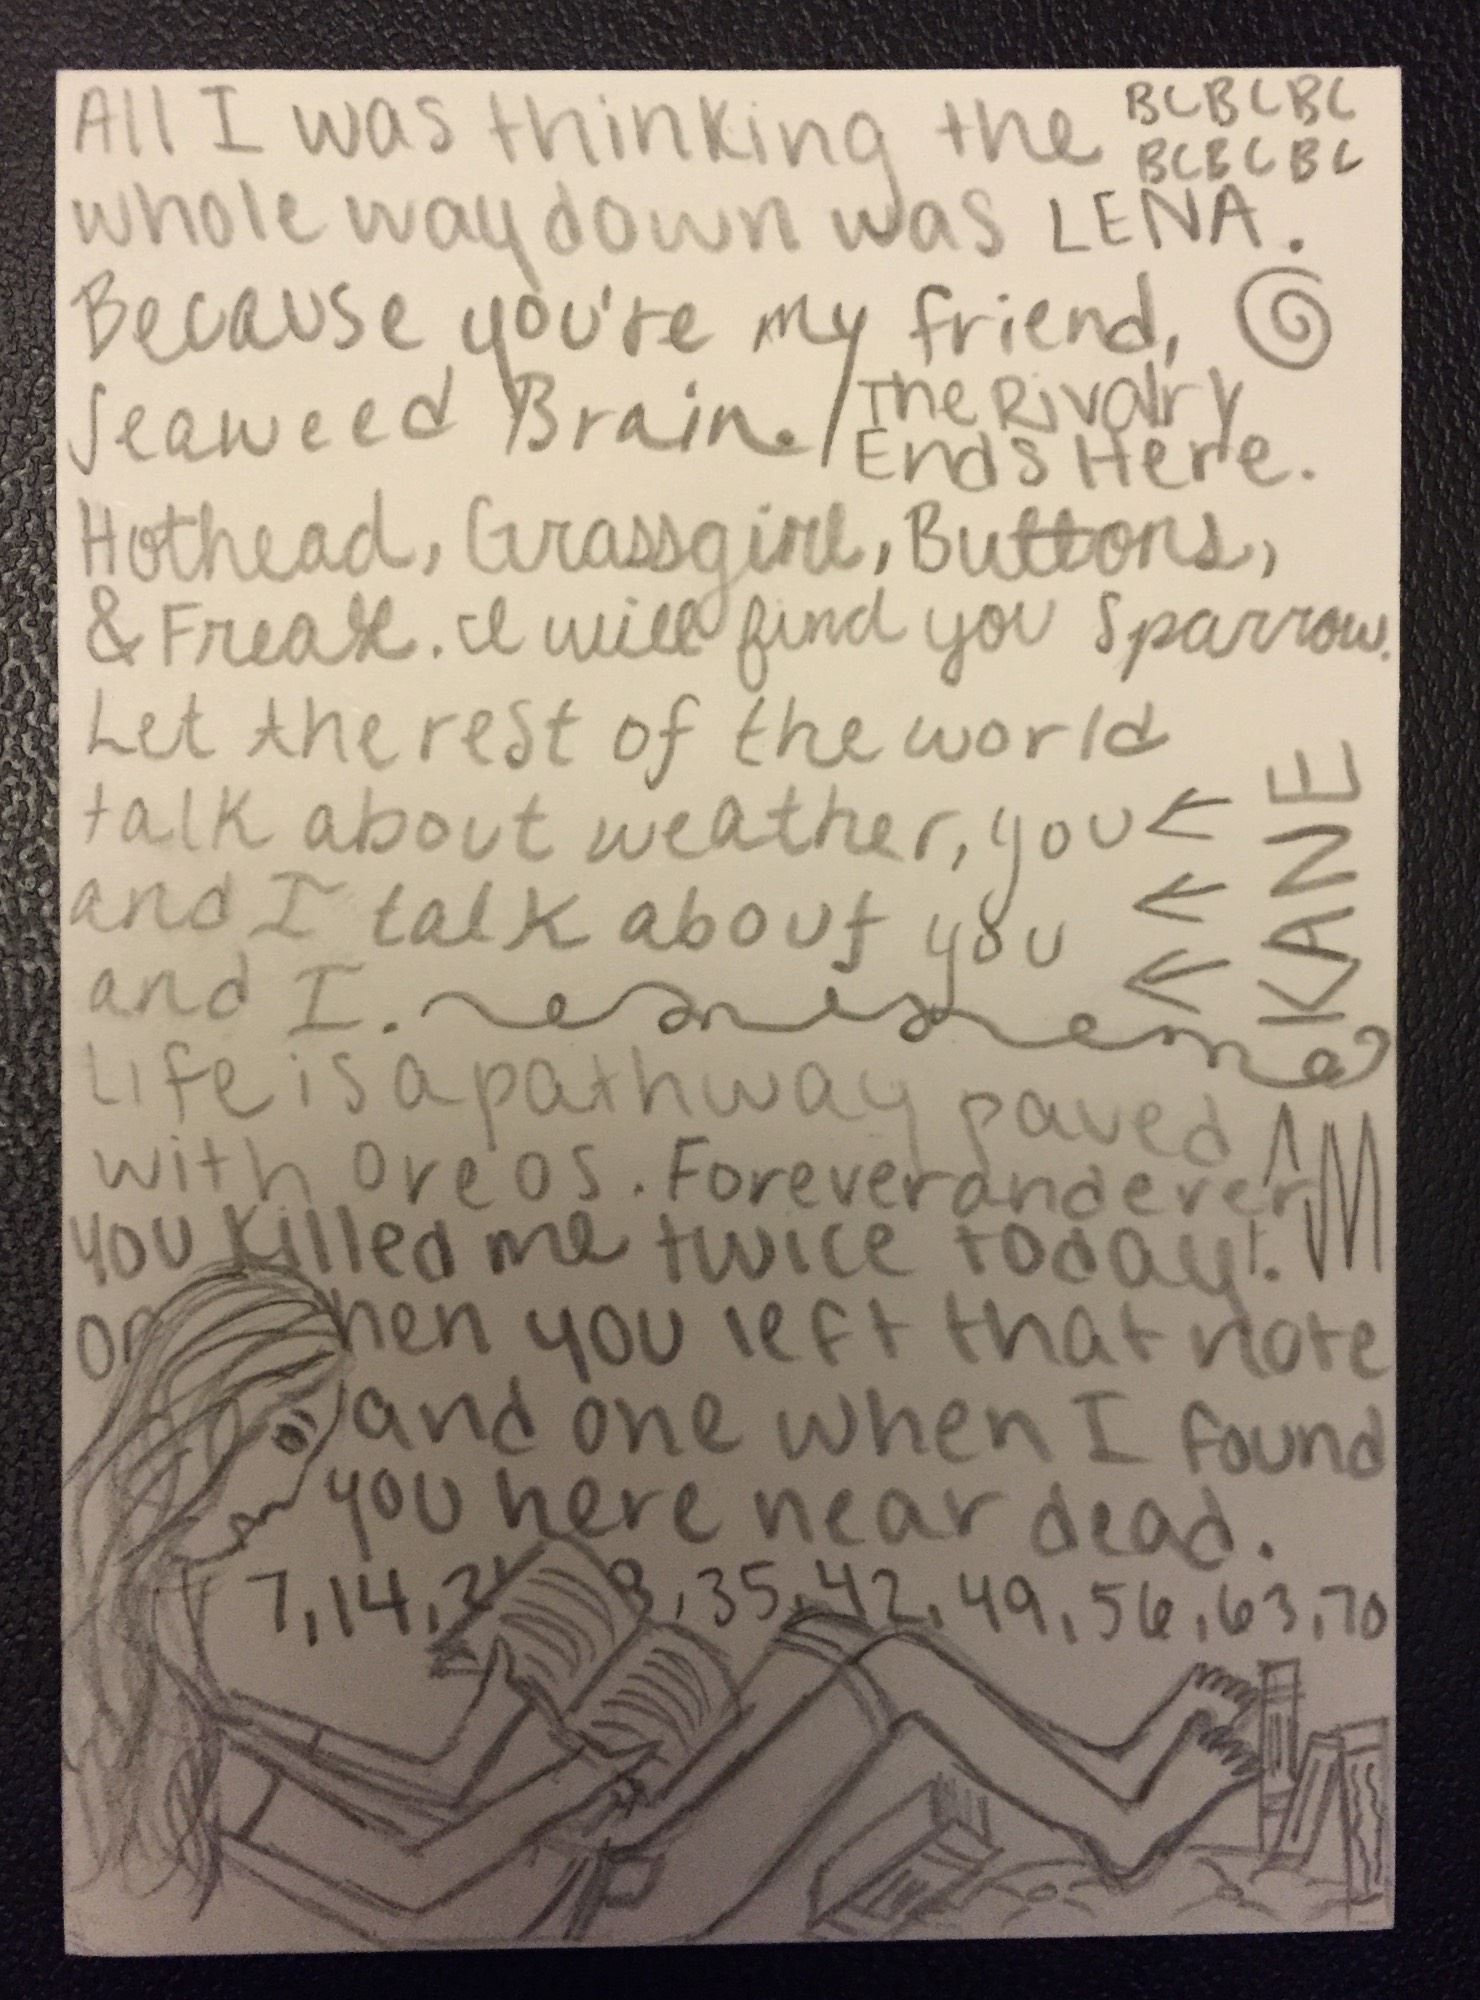 All I was thinking the
BCBCBC
BCBCBC
whole way down was LENA.
Because you're my friend,
Seaweed Brain. / The Rivalry
Ends Here.
Hothead, Grassgirl, Buttons,
& Freak. I will find you Sparrow.
Let the rest of the world
talk about weather, you
and I talk about you
and I.
KANE
Life is a pathway paved
with oreos. Foreverandever
you killed me twice today!.
hen you left that note
and one when I found
you here near dead.
7, 14, 35, 42, 49, 56, 63, 70